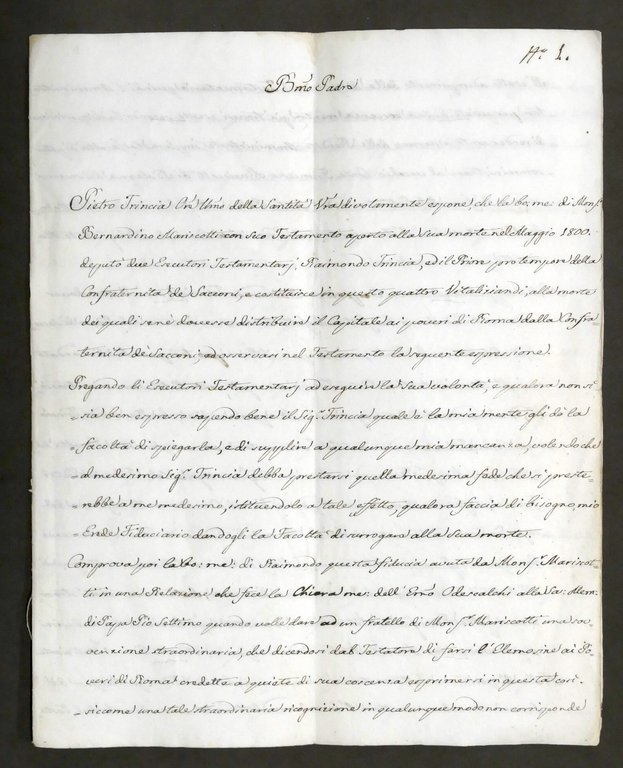 N.º 1.
Bmo Padre
Pietro Trincia Ore Umo della Santità Vra divotamente espone, che la bo: me: di Monsr
Bernardino Mariscotti con suo Testamento aperto alla sua morte nel Maggio 1800.
deputò due Esecutori Testamentarj, Raimondo Trincia, ed il Priore pro tempore della
Confraternita de' Sacconi, e costituisce in questo quattro Vitaliziandi, alla morte
dei quali se ne dovesse distribuire il Capitale ai poveri di Roma dalla Confra=
ternita de' Sacconi, ed osservasi nel Testamento la seguente espressione.
Pregando li Esecutori Testamentarj ad eseguire la sua volontà, e qualora non si
=sia ben espresso sapendo bene il Sigr Trincia quale è la mia mente gli dò la
facoltà di spiegarla, e di supplire a qualunque mia mancanza, volendo che
al medesimo Sigr Trincia debba prestarsi quella medesima fede che si preste=
=rebbe a me medesimo, istituendolo a tale effetto, qualora faccia di bisogno, mio
Erede Fiduciario dandogli la Facoltà di surrogare alla sua morte.
Comprova poi la bo: me: di Raimondo questa fiducia avuta da Monsr Mariscot=
ti in una Relazione che fece la Chiara me: dell' Emo Odescalchi alla Sa: Mem:
di Papa Pio Settimo quando volle dare ad un fratello di Monsr Mariscotti una sov=
venzione straordinaria, che dicendosi dal Testatore di farsi l' Elemosine ai Po=
veri di Roma credette a quiete di sua coscenza esprimersi in questa così.
=siccome una tale straordinaria ricognizione in qualunque modo non corrisponde